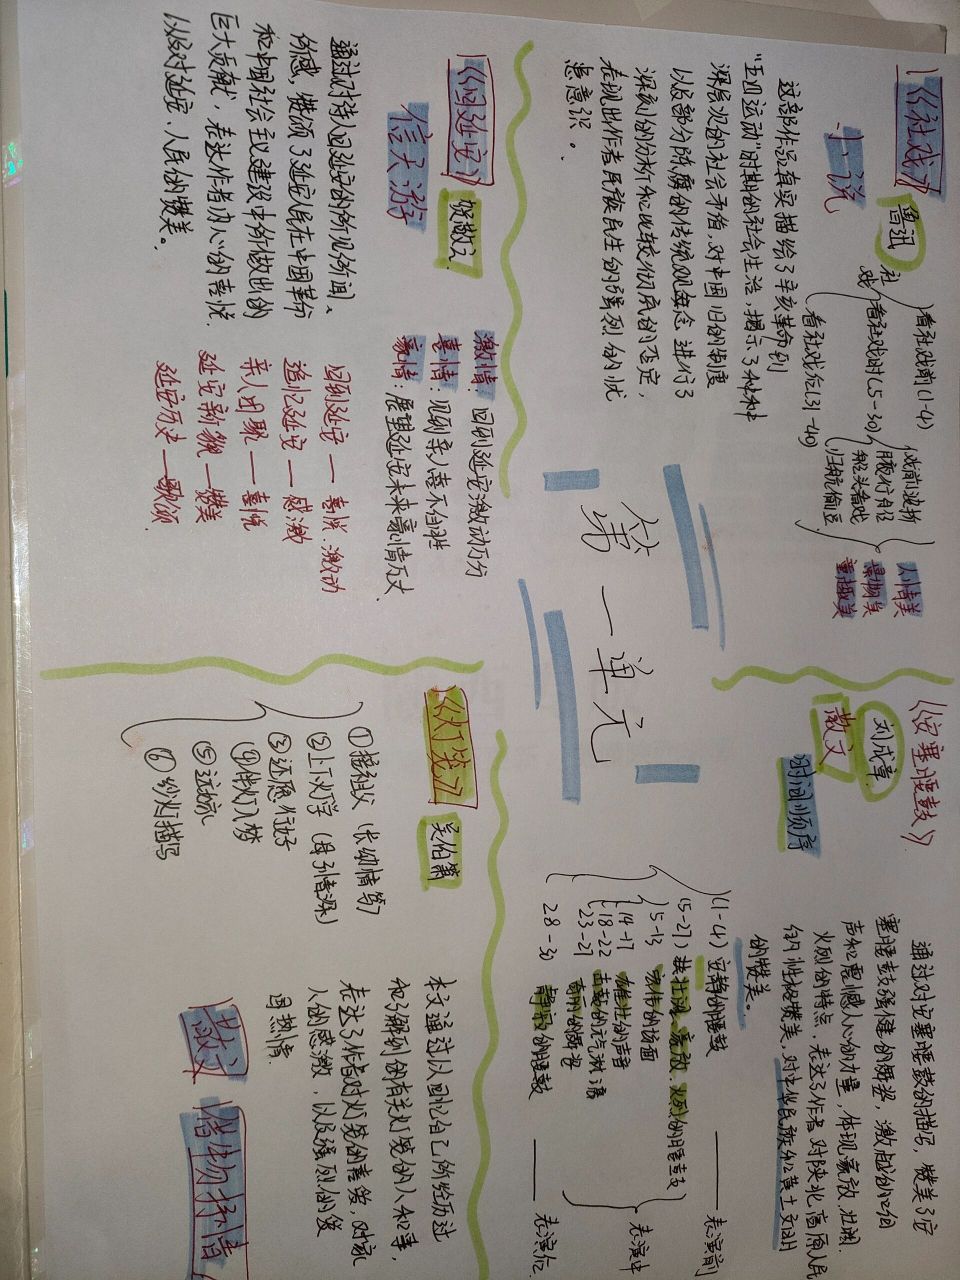 第一单元
《社戏》
鲁迅
小说
社戏
看社戏前(1-4)
看社戏时(5-30)
看社戏后(31-40)
戏前波折
月夜行舟
船头看戏
归航偷豆
人情美
景物美
童趣美
这部作品真实描绘了辛亥革命到
"五四运动"时期的社会生活,揭示了种种
深层次的社会矛盾,对中国旧的制度
以及部分陈腐的传统观念进行了
深刻的分析和比较彻底的否定,
表现出作者民族民生的强烈的忧
患意识。
《回延安》
贺敬之
信天游
通过对诗人回延安的所见所闻、
所感,赞颂了延安人民在中国革命
和中国社会主义建设中所做出的
巨大贡献,表达作者内心的喜悦
以及对延安,人民的赞美。
激情:回到延安激动万分
喜情:见到亲人喜不自胜
豪情:展望延安未来豪情万丈
回到延安——喜悦.激动
追忆延安——感激
亲人团聚——喜悦
延安新貌——赞美
延安历史——歌颂
《安塞腰鼓》
刘成章
散文
时间顺序
通过对安塞腰鼓的描写,赞美了安
塞腰鼓强健的舞姿,激越的
声和震撼人心的力量,体现豪放.壮阔.
火烈的特点,表达了作者对陕北高原人民
的性格赞美,对中华民族和黄土文明
的赞美。
(1-4)安静的腰鼓——表演前
(5-27)壮阔、豪放、火烈的腰鼓 表演中
5-13 的场面
14-17 雄壮的声音
18-22 击鼓的元气淋漓
23-27 奇丽的舞姿
28-30 静寂的腰鼓——表演后
《灯笼》
吴伯箫
①接祖父(长幼情笃)
②上下灯学(母子情深)
③还愿行好
④伴灯入梦
⑤
⑥纱灯描写
本文通过以回忆自己所经历过
和了解到的有关灯笼的人和事,
表达了作者对灯笼的喜爱,对家
人的感激,以及强烈的爱
国热情
散文
借物抒情